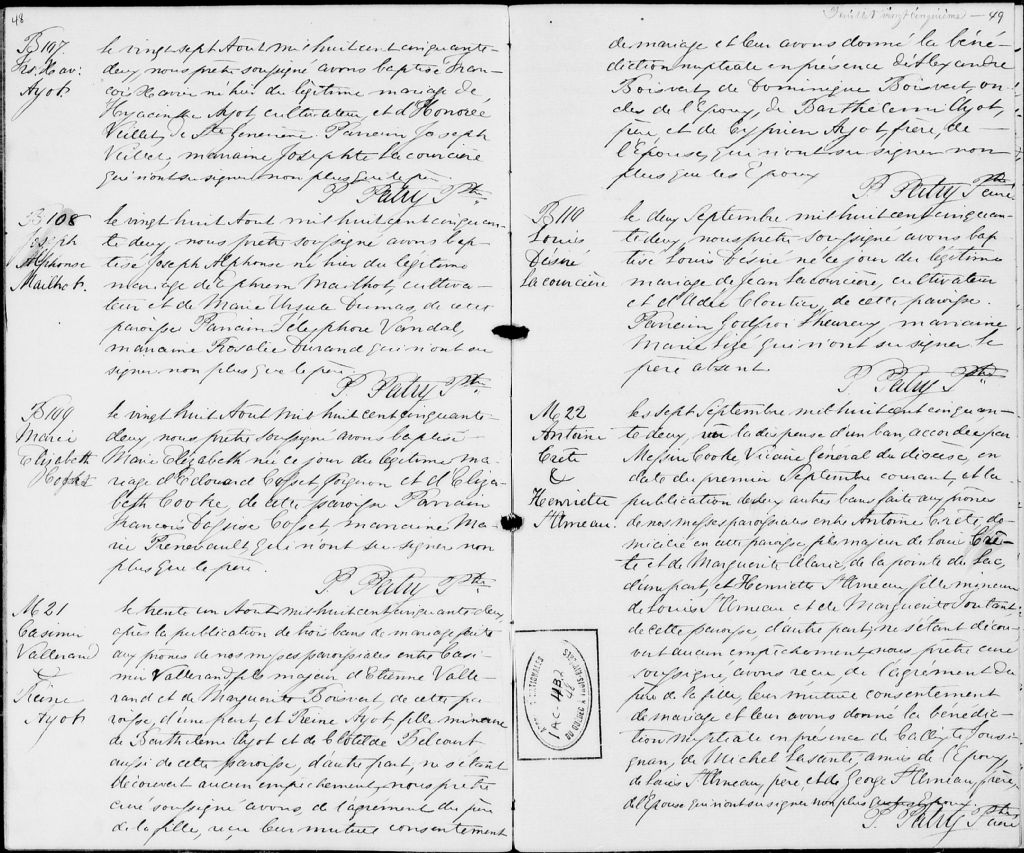 48
B 107.
Frs. Xav:
Ayot
le vingt sept Aout mil huit cent cinquante-
deux, nous prêtre soussigné avons baptisé Fran-
cois Xavier né hier du légitime mariage de
Hyacinthe Ayot, cultivateur et d'Honorée
Veillet, de Ste Geneviève. Parrain Joseph
Veillet, marraine Josephte Lacourcière
qui n'ont su signer non plus que le père.
P. Patry Ptre
B 108
Joseph
Alphonse
Mailhot.
le vingt huit Aout mil huit cent cinquan-
te deux, nous prêtre soussigné avons bap-
tisé Joseph Alphonse né hier du légitime
mariage de Ephrem Mailhot, cultiva-
teur et de Marie Ursule Dumas, de cette
paroisse. Parrain Télesphore Vandal,
marraine Rosalie Durand qui n'ont su
signer non plus que le père.
P. Patry Ptre
B 109
Marie
Elizabeth
Cosset
le vingt huit Aout mil huit cent cinquante-
deux, nous prêtre soussigné avons baptisé
Marie Elizabeth née ce jour du légitime ma-
riage d'Edouard Cosset, forgeron et d'Eliza-
beth Cooke, de cette paroisse. Parrain
Francois Cosset, marraine Ma-
rie qui n'ont su signer non
plus que le père.
P. Patry Ptre
M 21
Casimir
Vallerand
&
Reine
Ayot
le trente un Aout mil huit cent cinquante deux,
après la publication de trois bans de mariage faite
aux prones de nos messes paroissiales entre Casi-
mir Vallerand fils majeur d'Etienne Valle-
rand et de Marguerite Boisvert, de cette pa-
roisse, d'une part, et Reine Ayot, fille mineure
de Barthelemi Ayot et de Clotilde Belcourt,
aussi de cette paroisse, d'autre part, ne s'étant
découvert aucun empêchement, nous prêtre
curé soussigné avons, de l'agrément du père
de la fille, reçu leur mutuel consentement
feuillet vingt cinquième — 49
de mariage et leur avons donné la béné-
diction nuptiale en présence d'Alexandre
Boisvert, de Dominique Boisvert, on-
cles de l'Epoux, de Barthelemi Ayot,
père et de Cyprien Ayot, frère, de
l'Epouse, qui n'ont su signer non
plus que les Epoux
P. Patry Ptre curé
B 110
Louis
Désiré
Lacourcière
le deux Septembre mil huit cent cinquan-
te deux, nous prêtre soussigné avons bap
tisé Louis Désiré né ce jour du légitime
mariage de Jean Lacourcière, cultivateur
et d'Adée Cloutier, de cette paroisse.
Parrain Godfroi L'heureux, marraine
Marie Lizé qui n'ont su signer. le
père absent.
P. Patry Ptre
M 22
Antoine
Crête
&
Henriette
St Arneau.
les sept Septembre mil huit cent cinquan-
te deux, vu la dispense d'un ban, accordée par
Messire Cooke Vicaire General du diocèse, en
date du premier Septembre courant, et la
publication de deux autres bans faite aux prones
de nos messes paroissiales entre Antoine Crête, do-
micilié en cette paroisse, fils majeur de Louis Crê-
te et de Marguerite Alarie, de la pointe du Lac,
d'une part, et Henriette St Arneau, fille mineure
de Louis St Arneau et de Marguerite Toutant
de cette paroisse, d'autre part, ne s'étant décou-
vert aucun empêchement, nous prêtre curé
soussigné, avons reçu de l'agrément du
père de la fille, leur mutuel consentement
de mariage et leur avons donné la bénédic-
tion nuptiale en présence de Calixte Joussi-
gnan, de Michel Lasante, amis de l'Epoux,
de Louis St Arneau, père, et de George St Arneau, frère,
de l'Epouse qui n'ont su signer non plus que les Epoux.
P. Patry Ptre curé